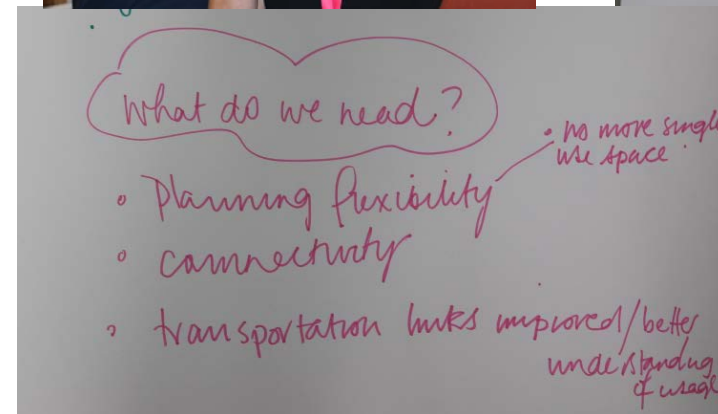 What do we need?
• Planning flexibility
• no more single
use space.
• connectivity
• transportation links improved/better
understanding
of usage